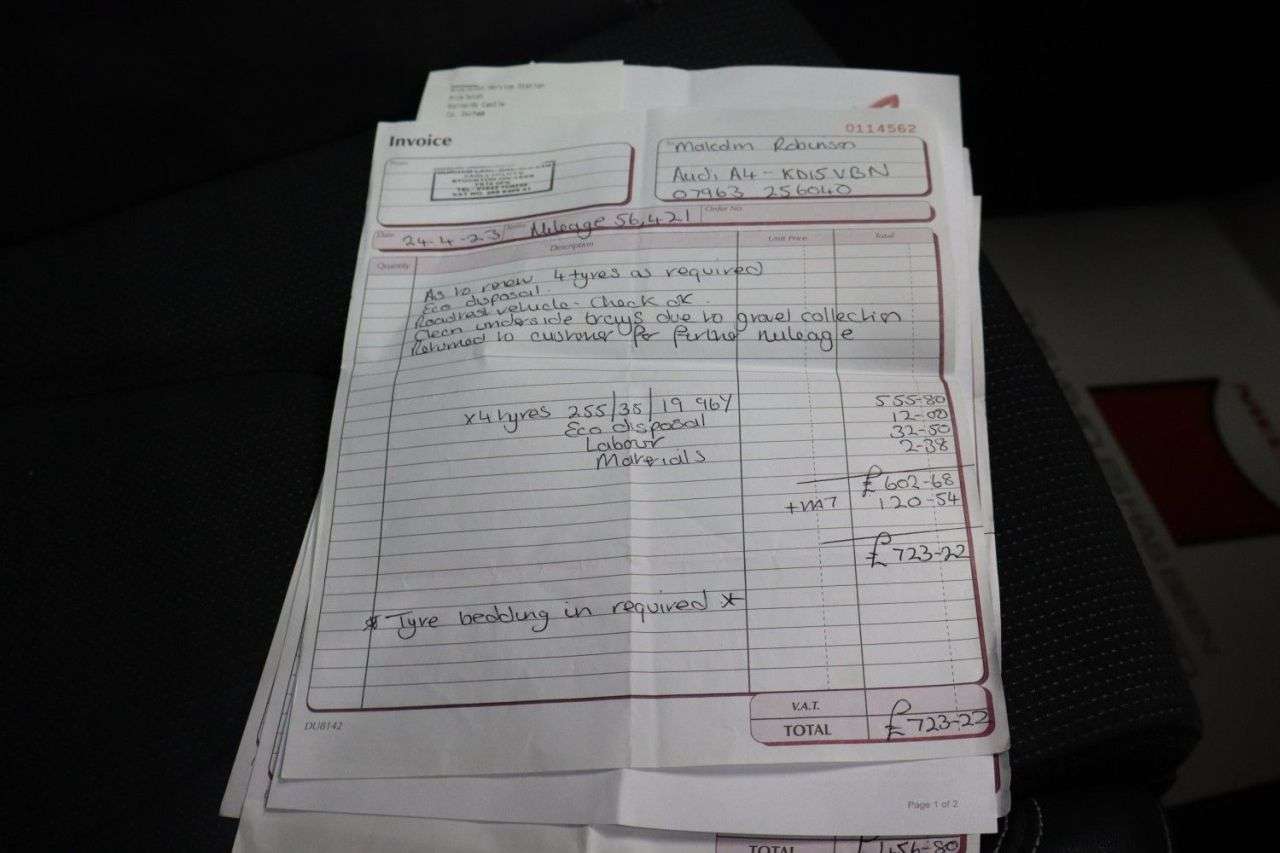 Service Station
Invoice
0114562
Malcolm Robinson
Audi A4 - KD15 VBN
07963 256040
Date 24-4-23 Mileage 56,421 Order No.
Quantity Description Unit Price Total
As to renew 4 tyres as required
Eco disposal.
Roadtest vehicle - Check OK.
Clean underside trays due to gravel collection
Returned to customer for further mileage
x4 tyres 255/35/19 96Y 555-80
Eco disposal 12-00
Labour 32-50
Materials 2-38
£602-68
+VAT 120-54
£723-22
* Tyre bedding in required *
V.A.T.
TOTAL £723-22
DU8142
Page 1 of 2
TOTAL